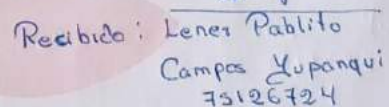 Recibido: Lener Pablito
Campos Yupanqui
73126724